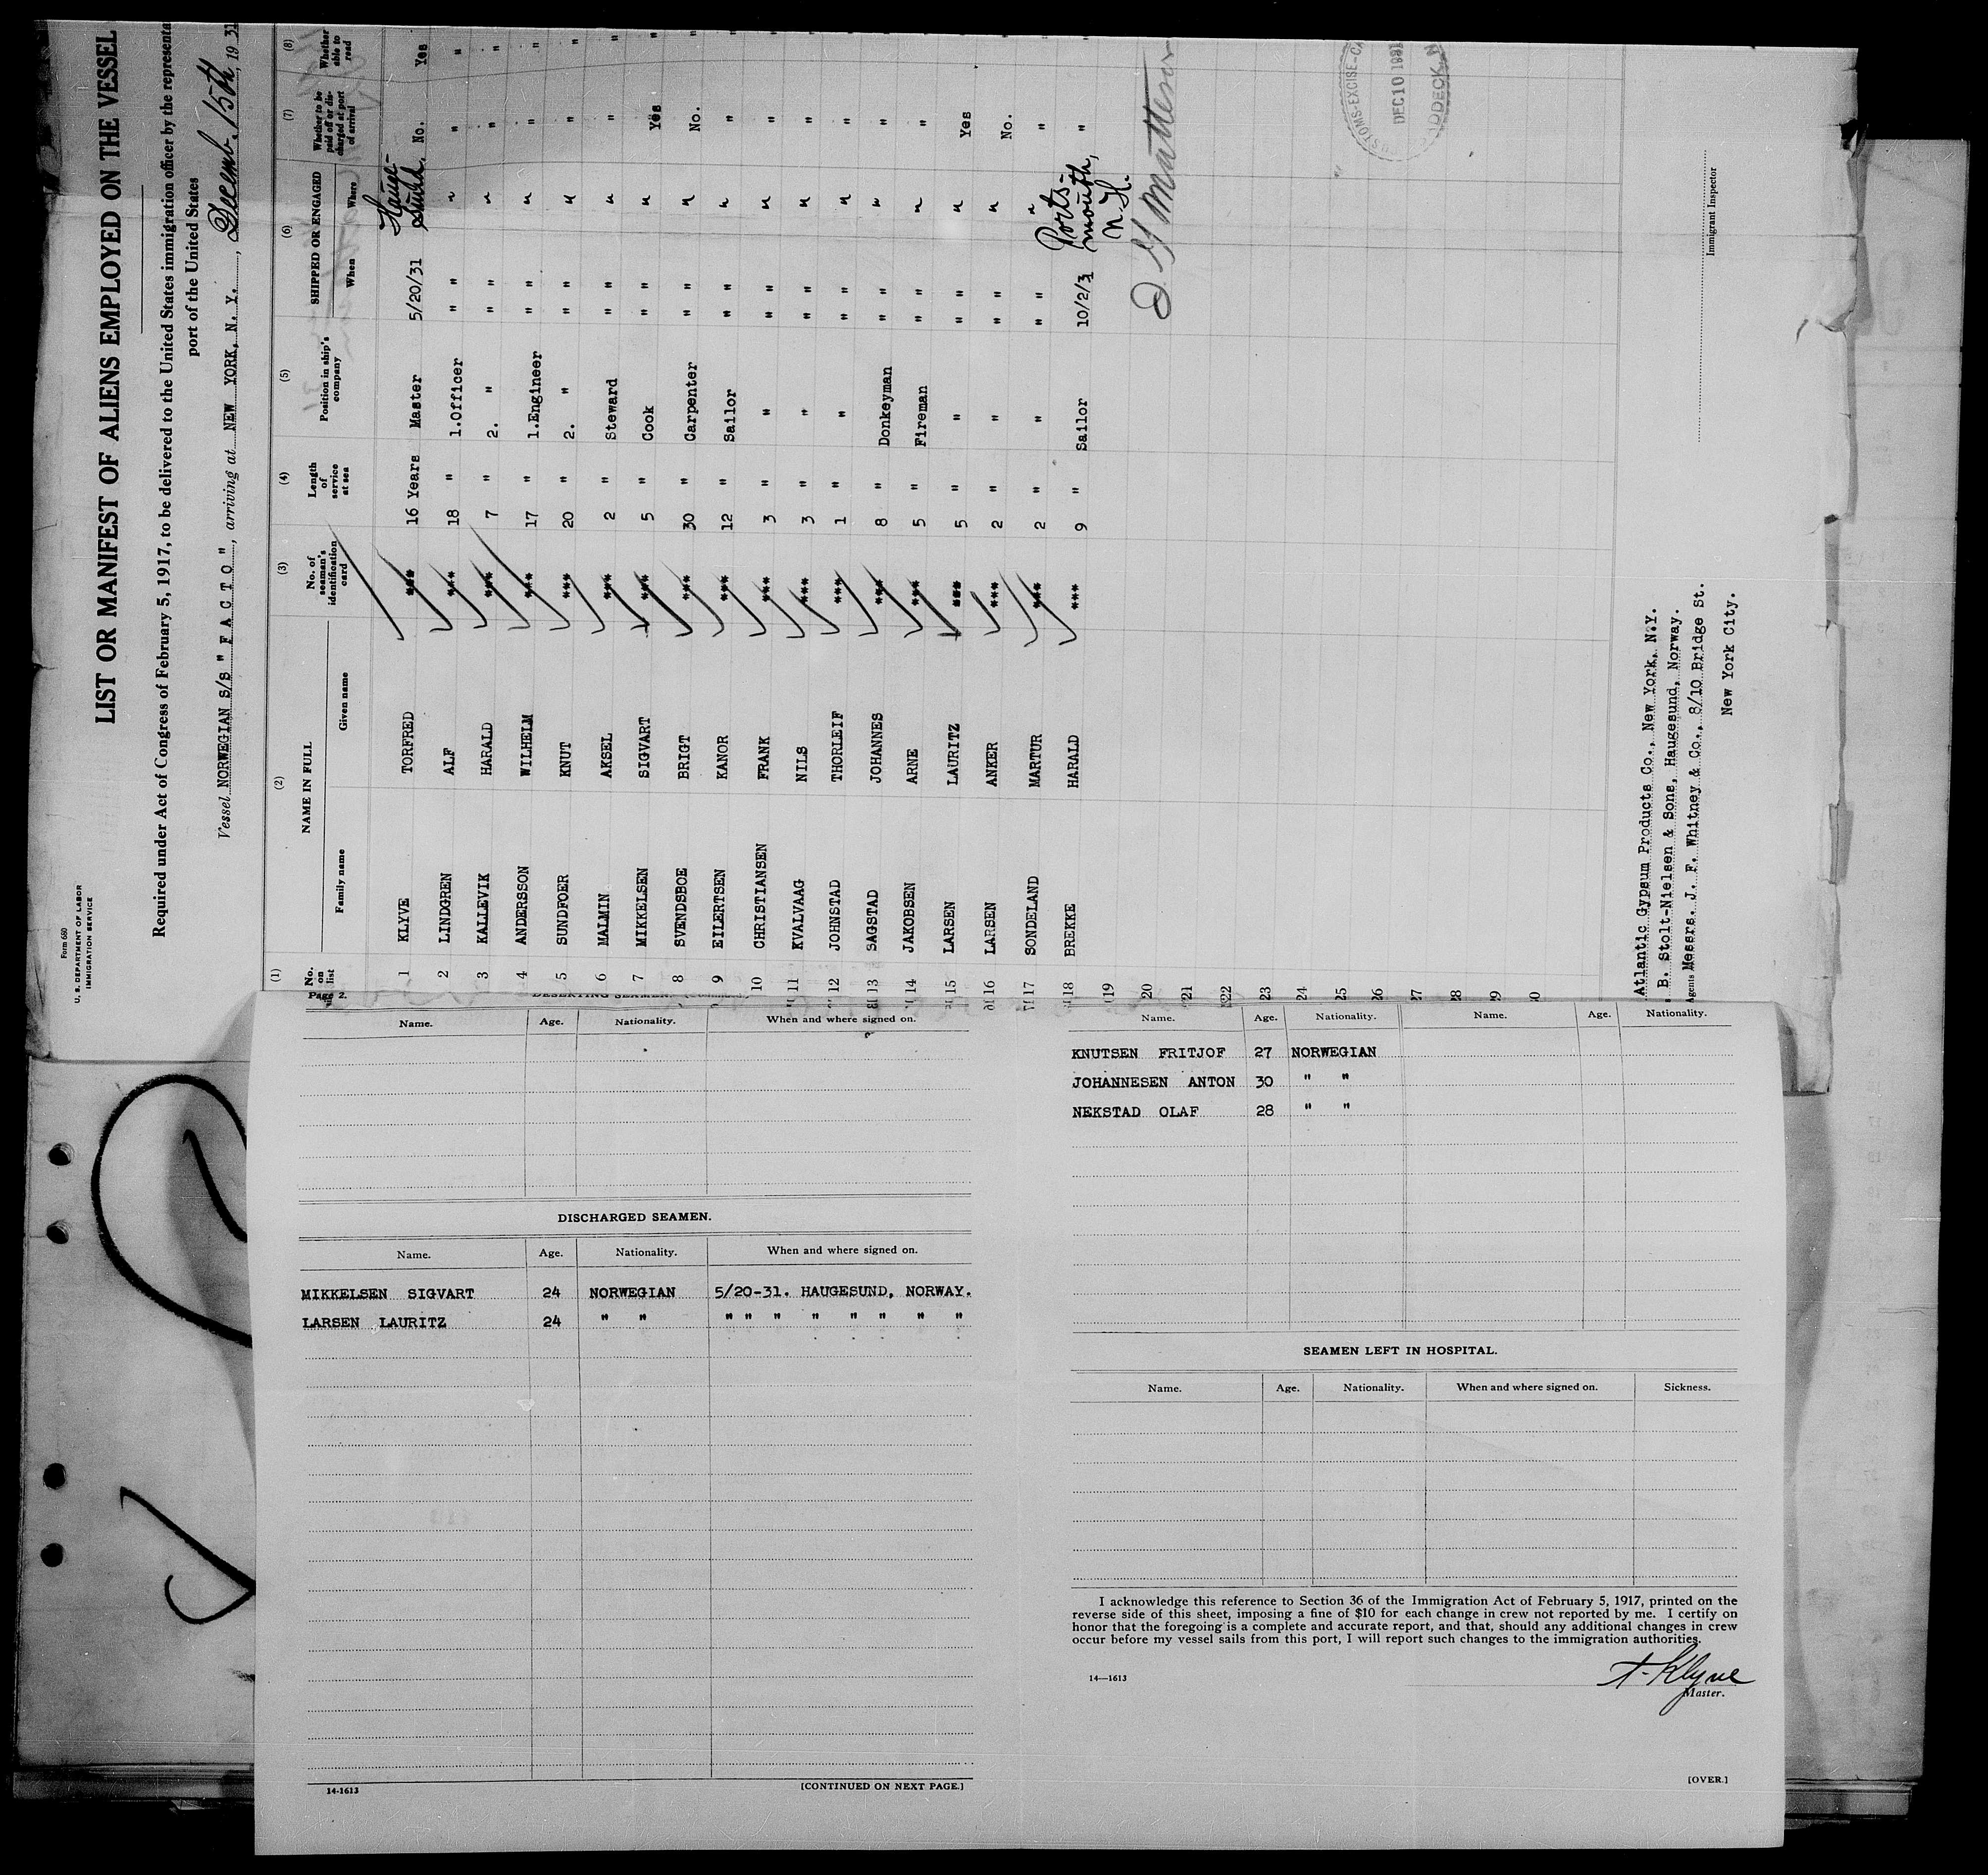 Form 680
U. S. DEPARTMENT OF LABOR
IMMIGRATION SERVICE
LIST OR MANIFEST OF ALIENS EMPLOYED ON THE VESSEL
Required under Act of Congress of February 5, 1917, to be delivered to the United States immigration officer by the
port of the United States
Vessel NORWEGIAN S/S "F A C T O", arriving at NEW YORK, N. Y., Decemb. 15th, 1931
(1) (2) (3) (4) (5) (6) (7) (8)
No. on list NAME IN FULL No. of seaman's identification card Length of service at sea Position in ship's company SHIPPED OR ENGAGED Whether to be paid off or discharged at port of arrival Whether able to read
Family name Given name When Where
1 KLYVE TORFRED *** 16 Years Master 5/20/31 Hauge-sund. No. Yes
2 LINDGREN ALF *** 18 " 1.Officer " " " " "
3 KALLEVIK HARALD *** 7 " 2. " " " " " "
4 ANDERSSON WILHELM *** 17 " 1.Engineer " " " " "
5 SUNDFOER KNUT *** 20 " 2. " " " " " "
6 MALMIN AKSEL *** 2 " Steward " " " " "
7 MIKKELSEN SIGVART *** 5 " Cook " " " Yes "
8 SVENDSBOE BRIGT *** 30 " Carpenter " " " No. "
9 EILERTSEN KANOR *** 12 " Sailor " " " " "
10 CHRISTIANSEN FRANK *** 3 " " " " " " "
11 KVALVAAG NILS *** 3 " " " " " " "
12 JOHNSTAD THORLEIF *** 1 " " " " " " "
13 SAGSTAD JOHANNES *** 8 " Donkeyman " " " " "
14 JAKOBSEN ARNE *** 5 " Fireman " " " " "
15 LARSEN LAURITZ *** 5 " " " " " Yes "
16 LARSEN ANKER *** 2 " " " " " No. "
17 SONDELAND MARTUR *** 2 " " " " " " "
18 BREKKE HARALD *** 9 " Sailor 10/2/3 Ports-mouth, N.H. " "
19
20
21
22
23
24
25
26
27
28
29
30
CUSTOMS-EXCISE
DEC 10 1931
Atlantic Gypsum Products Co., New York, N.Y.
B. Stolt-Nielsen & Sons, Haugesund, Norway.
Agents Messrs. J. F. Whitney & Co., 8/10 Bridge St.
New York City.
Immigrant Inspector
Page 2.
Name. Age. Nationality. When and where signed on.
DISCHARGED SEAMEN.
Name. Age. Nationality. When and where signed on.
MIKKELSEN SIGVART 24 NORWEGIAN 5/20-31. HAUGESUND, NORWAY.
LARSEN LAURITZ 24 " " " " " " " " " "
14-1613
[CONTINUED ON NEXT PAGE.]
Name. Age. Nationality. Name. Age. Nationality.
KNUTSEN FRITJOF 27 NORWEGIAN
JOHANNESEN ANTON 30 " "
NEKSTAD OLAF 28 " "
SEAMEN LEFT IN HOSPITAL.
Name. Age. Nationality. When and where signed on. Sickness.
I acknowledge this reference to Section 36 of the Immigration Act of February 5, 1917, printed on the
reverse side of this sheet, imposing a fine of $10 for each change in crew not reported by me. I certify on
honor that the foregoing is a complete and accurate report, and that, should any additional changes in crew
occur before my vessel sails from this port, I will report such changes to the immigration authorities.
14—1613
T. Klyve
Master.
[OVER.]